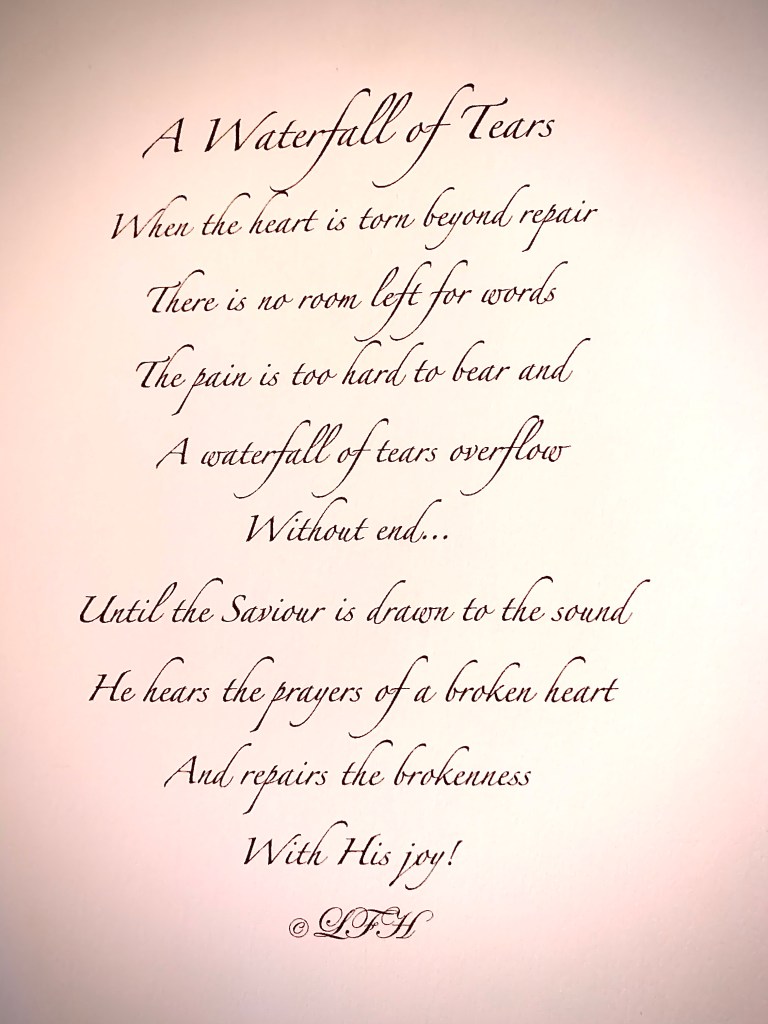 A Waterfall of Tears
When the heart is torn beyond repair
There is no room left for words
The pain is too hard to bear and
A waterfall of tears overflow
Without end...
Until the Saviour is drawn to the sound
He hears the prayers of a broken heart
And repairs the brokenness
With His joy!
© LFH